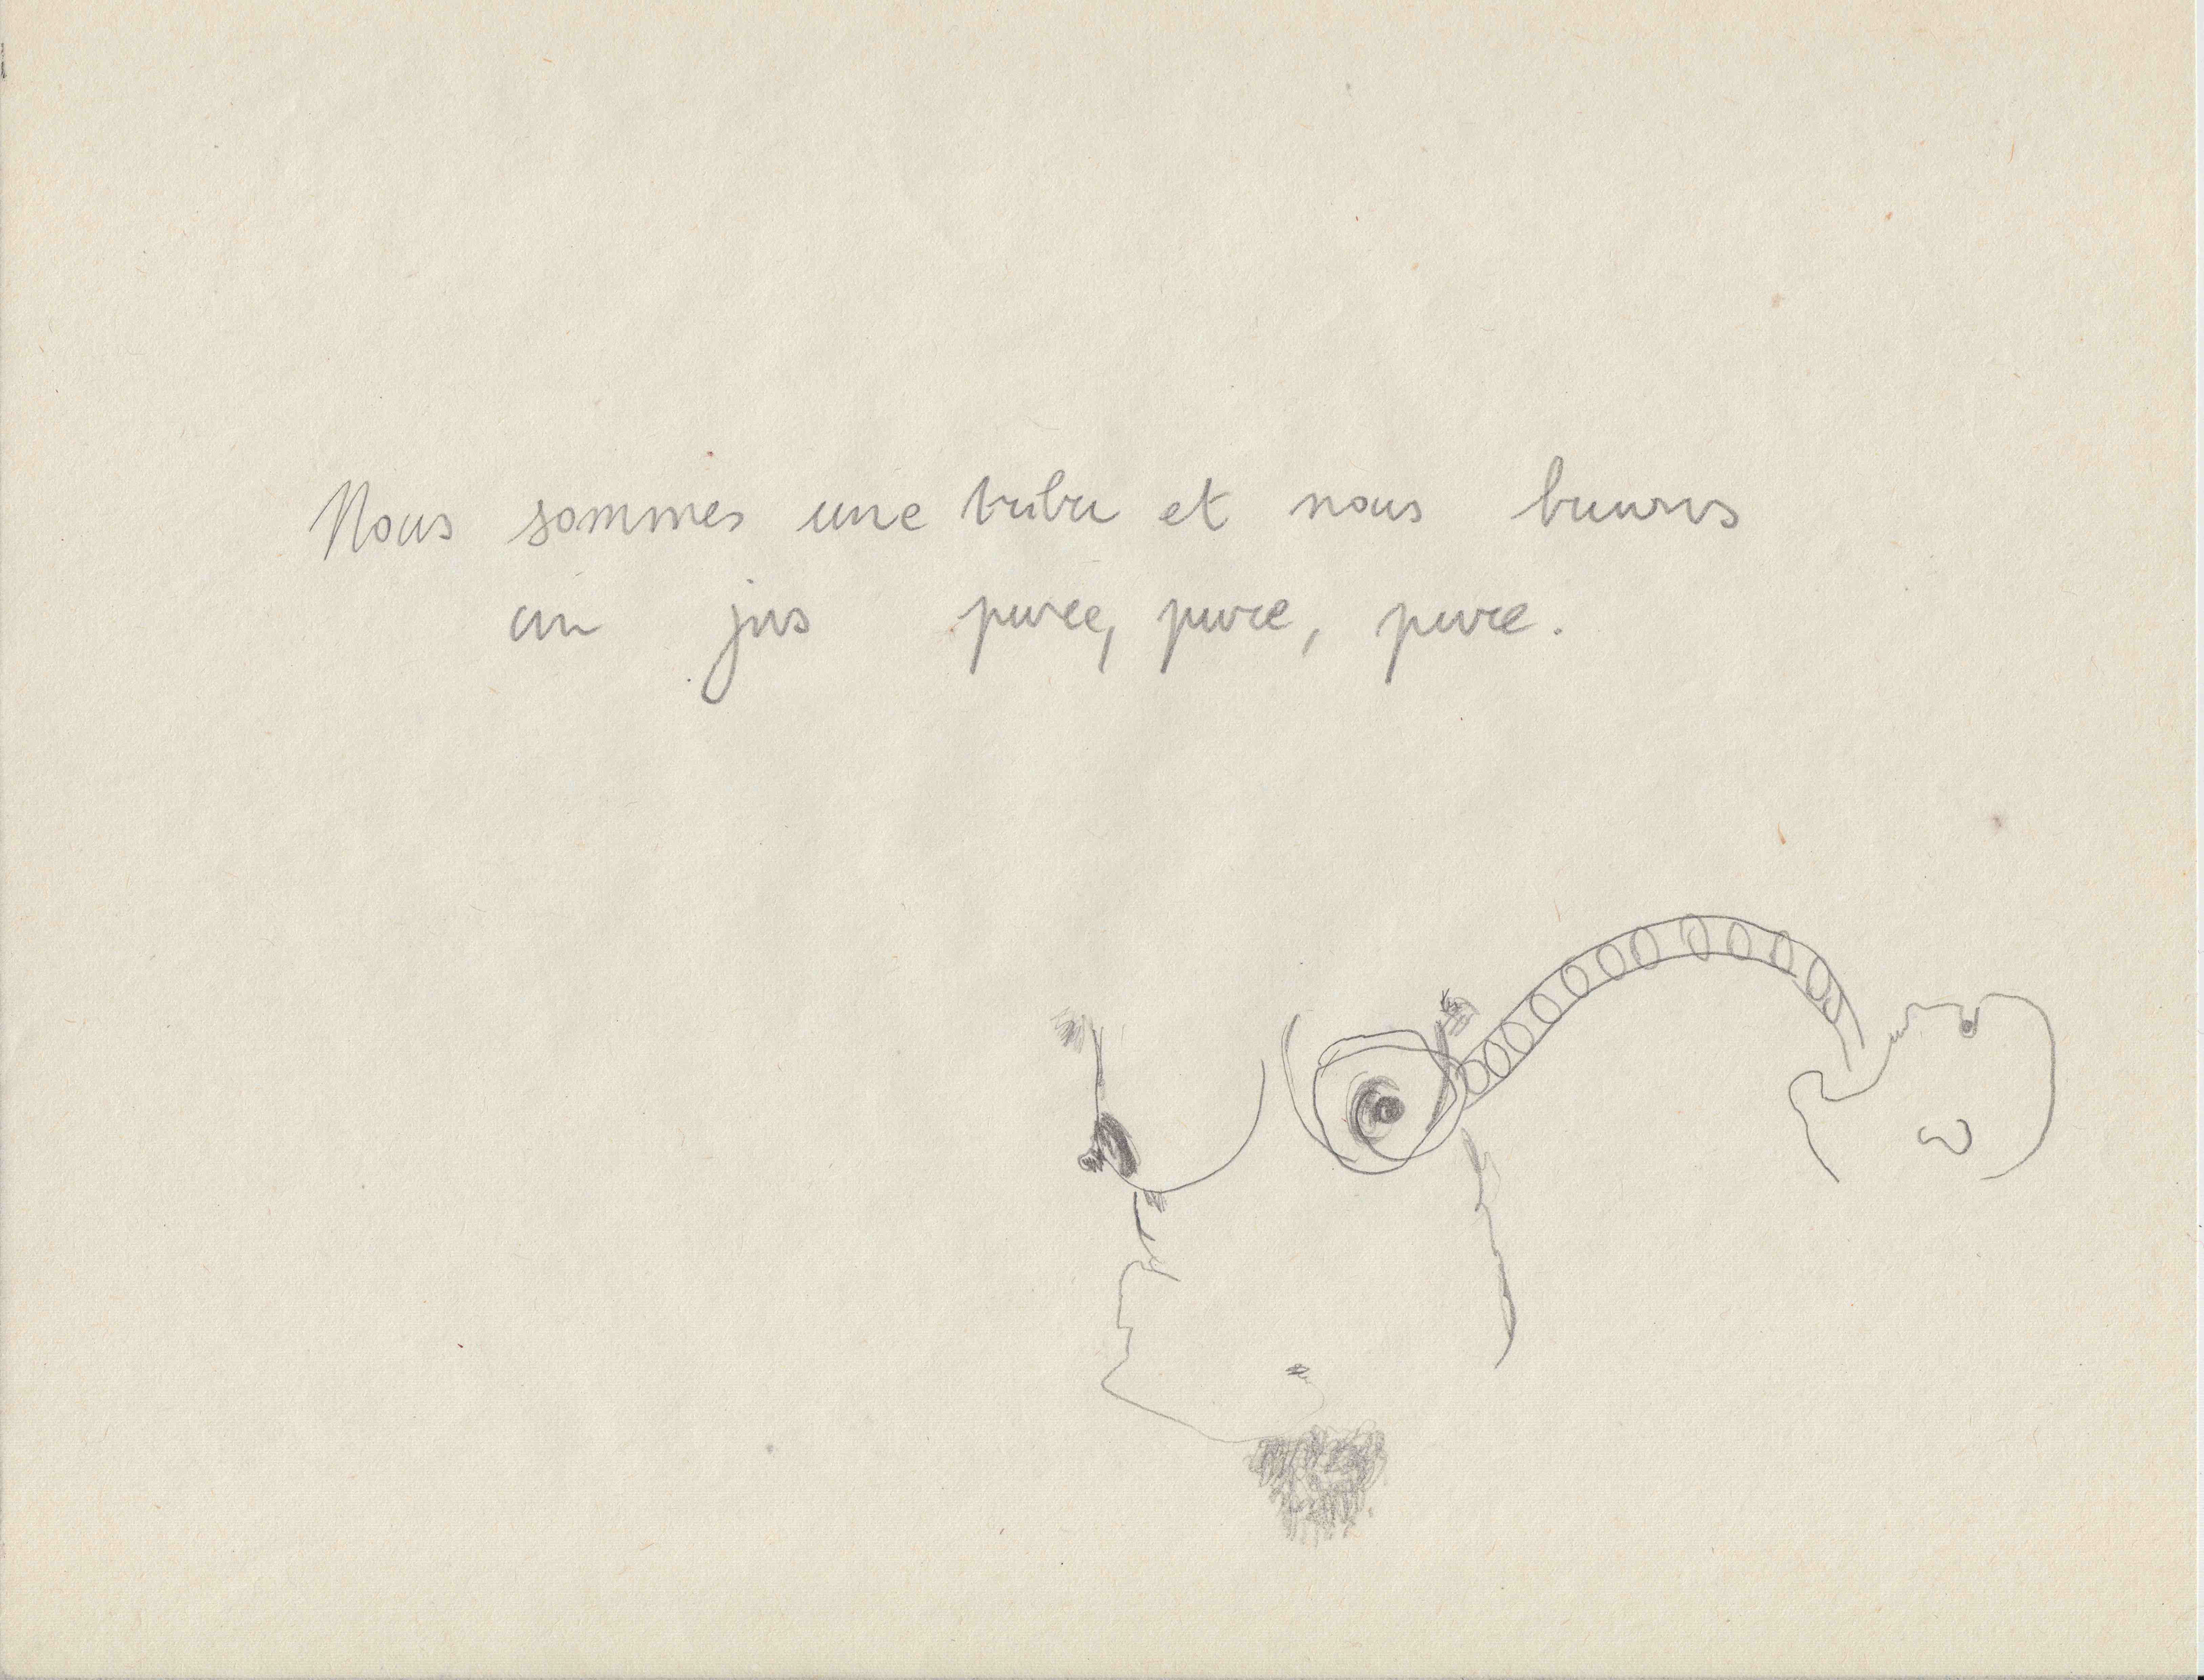 Nous sommes une tribu et nous buvons
un jus purée, pure, pure.